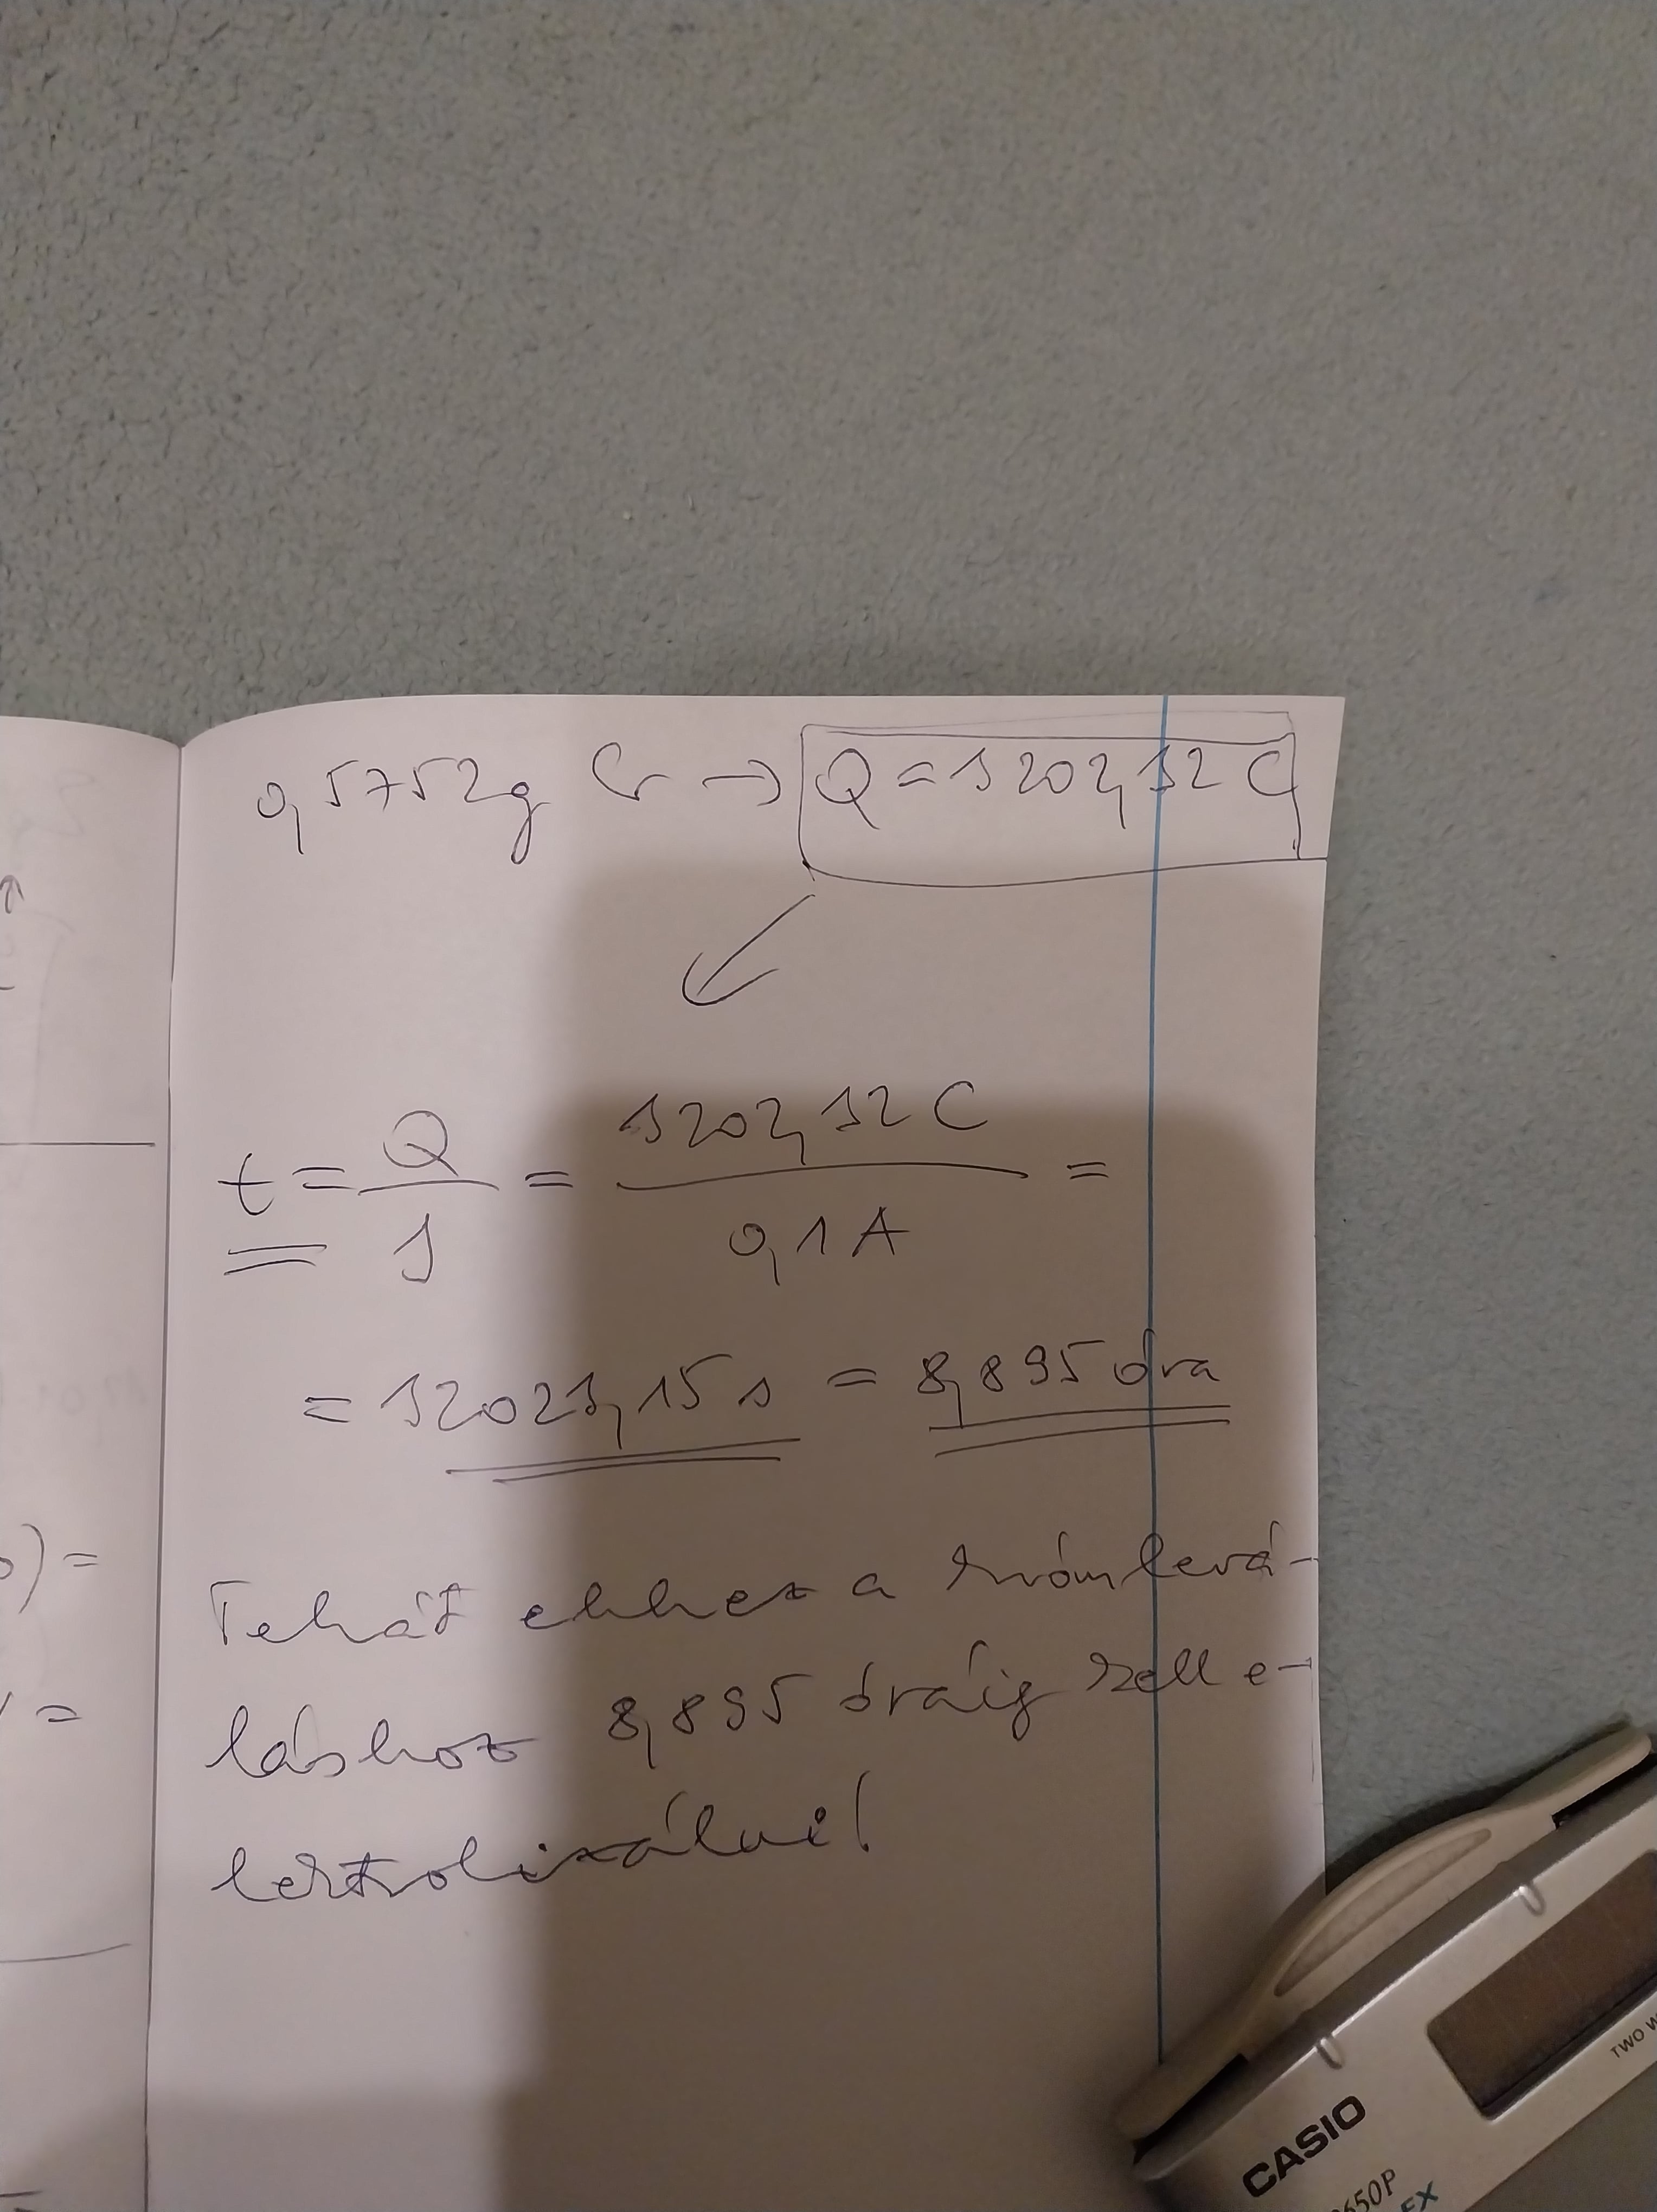 0,5752g Cr → Q = 3202,12 C
t = Q / I = 3202,12 C / 0,1 A =
= 32021,15 s = 8,895 óra
) =
Tehát ehhez a krómlevá-
=
láshoz 8,895 óráig kell e-
lektrolizálni!
TWO W
CASIO
650P
EX